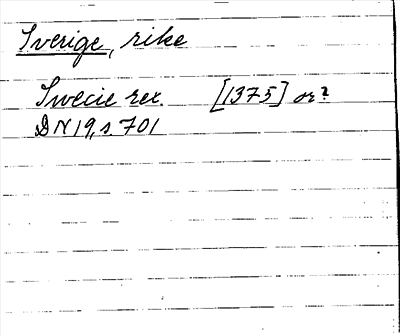 Sverige, rike
Swecie rex [1375] or?
DN 19, s. 701